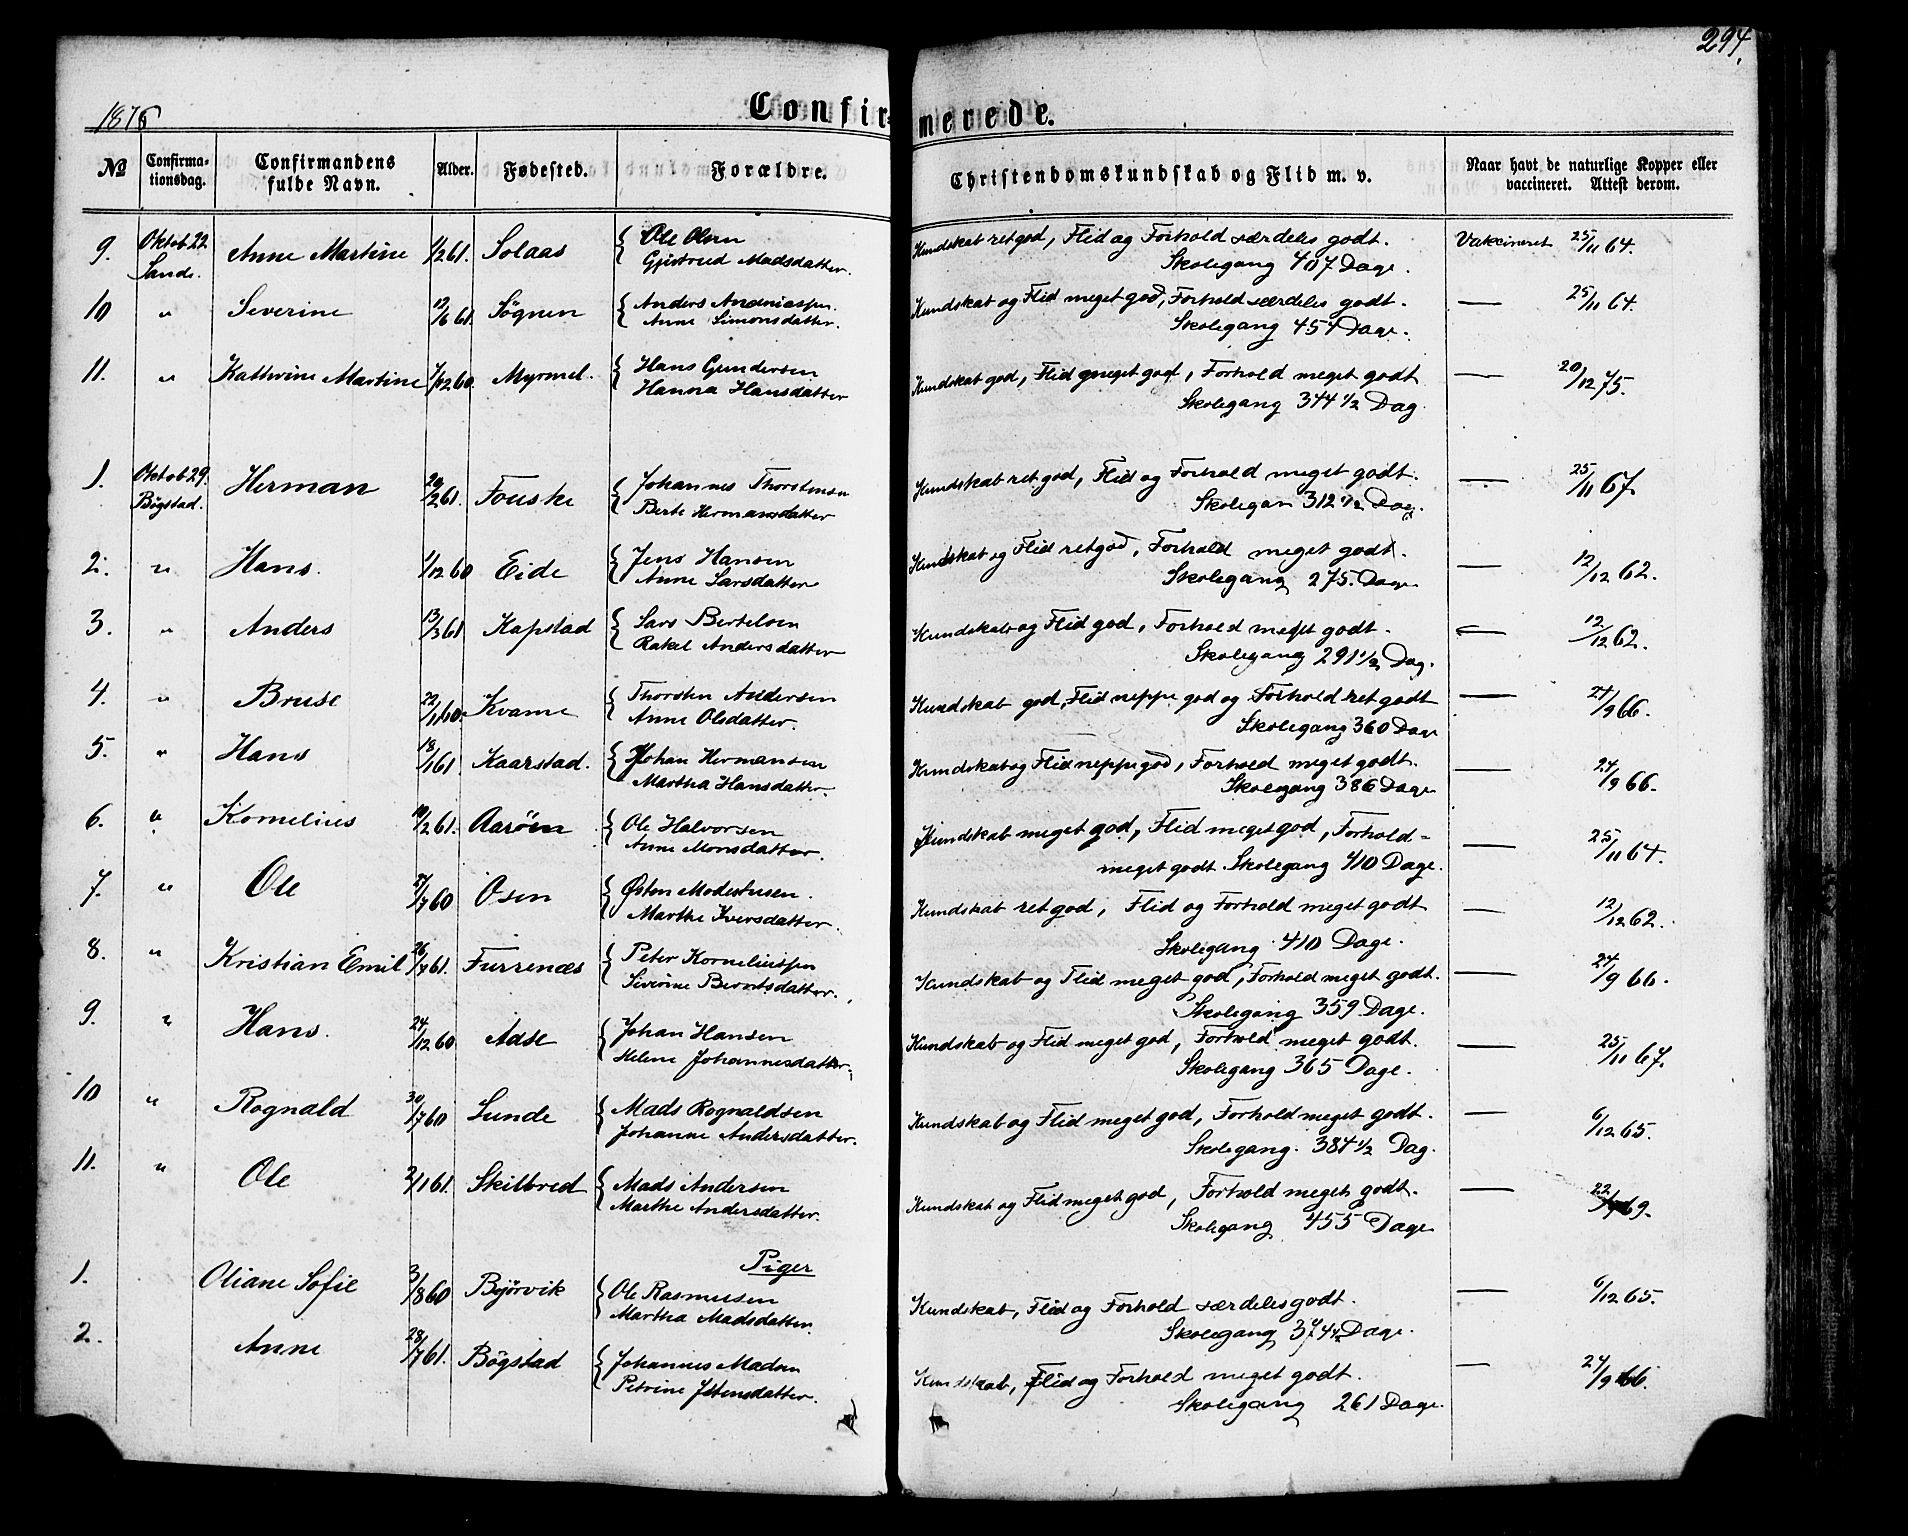 294.
1876
Confirmerede.
No
Confirmationsdag.
Confirmandens fulde Navn.
Alder.
Fødested.
Forældre.
Christendomskundskab og Flid m. v.
Naar havt de naturlige Kopper eller vaccineret. Attest derom.
9. Oktob. 22 Sande. Anne Martine 1/2 61. Solaas { Ole Olsen Kundskab ret god, Flid og Forhold særdeles godt. Vakcineret 25/11 64.
Gjertrud Madsdatter. Skolegang 407 Dage.
10 " Severine 12/6 61. Søgnen { Anders Andreassen Kundskab og Flid meget god, Forhold særdeles godt. — 25/11 64.
Anne Simonsdatter. Skolegang 454 Dage.
11. " Kathrine Martine 7/12 60. Myrmel. { Hans Gundersen Kundskab god, Flid meget god, Forhold meget godt — 20/12 75.
Hanna Hansdatter Skolegang 344 1/2 Dag.
1. Oktob. 29. Bøgstad. Herman 20/2 61. Fouske { Johannes Thorstensen Kundskab ret god, Flid og Forhold meget godt. — 25/11 67
Berte Hermansdatter Skolegan 312 1/2 Dag.
2. " Hans. 1/12 60 Eide { Jens Hansen Kundskab og Flid ret god, Forhold meget godt. — 12/12 62.
Anne Larsdatter Skolegang 275. Dage
3. " Anders 13/3 61 Kapstad { Lars Bertelsen Kundskab og Flid god, Forhold meget godt. — 12/12 62.
Rakel Andersdatter Skolegang 291 1/2 Dag.
4. " Bruse 22/11 60. Kvame { Thorsten Andersen Kundskab god, Flid neppe god og Forhold ret godt — 24/9 66.
Anne Olsdatter. Skolegang 360 Dage
5. " Hans 18/1 61 Kaarstad. { Johan Hermansen Kundskab og Flid neppe god, Forhold meget godt. — 24/9 66.
Martha Hansdatter. Skolegang 386 Dage
6. " Kornelius 10/2 61. Aarøen { Ole Halvorsen Kundskab meget god, Flid meget god, Forhold - — 25/11 64.
Anne Monsdatter. meget godt. Skolegang 410 Dage.
7. " Ole /7 60 Osen { Østen Modestusen. Kundskab ret god, Flid og Forhold meget godt — 12/12 62.
Marthe Iversdatter. Skolegang 410 Dage.
8. " Kristian Emil 26/7 61. Furrenæs { Peter Korneliussen Kundskab og Flid meget god, Forhold meget godt. — 24/9 66.
Siverine Berntsdatter. Skolegang 359 Dage.
9. " Hans. 24/12 60 Aase { Johan Hansen Kundskab og Flid meget god, Forhold meget godt. — 25/11 67.
Helene Johannesdatter. Skolegang 365 Dage.
10 " Rognald 30/7 60 Sunde { Mads Rognaldsen Kundskab og Flid meget god, Forhold meget godt. — 6/12 65.
Johanne Andersdatter. Skolegang. 384 1/2 Dag.
11. " Ole 2/1 61. Skilbred { Mads Andersen Kundskab og Flid meget god, Forhold meget godt. — 22/ 69.
Marthe Andersdatter. Skolegang 455 Dage
Piger
1. Oliane Sofie 3/8 60 Bjørvik { Ole Rasmusen Kundskab, Flid og Forhold særdeles godt. — 6/12 65.
Martha Madsdatter. Skolegang 374 1/2 Dage.
2. Anne 28/7 61. Bøgstad { Johannes Madsen Kundskab, Flid og Forhold meget godt. — 24/9 66.
Petrine Jensdatter. Skolegang 261 Dage.